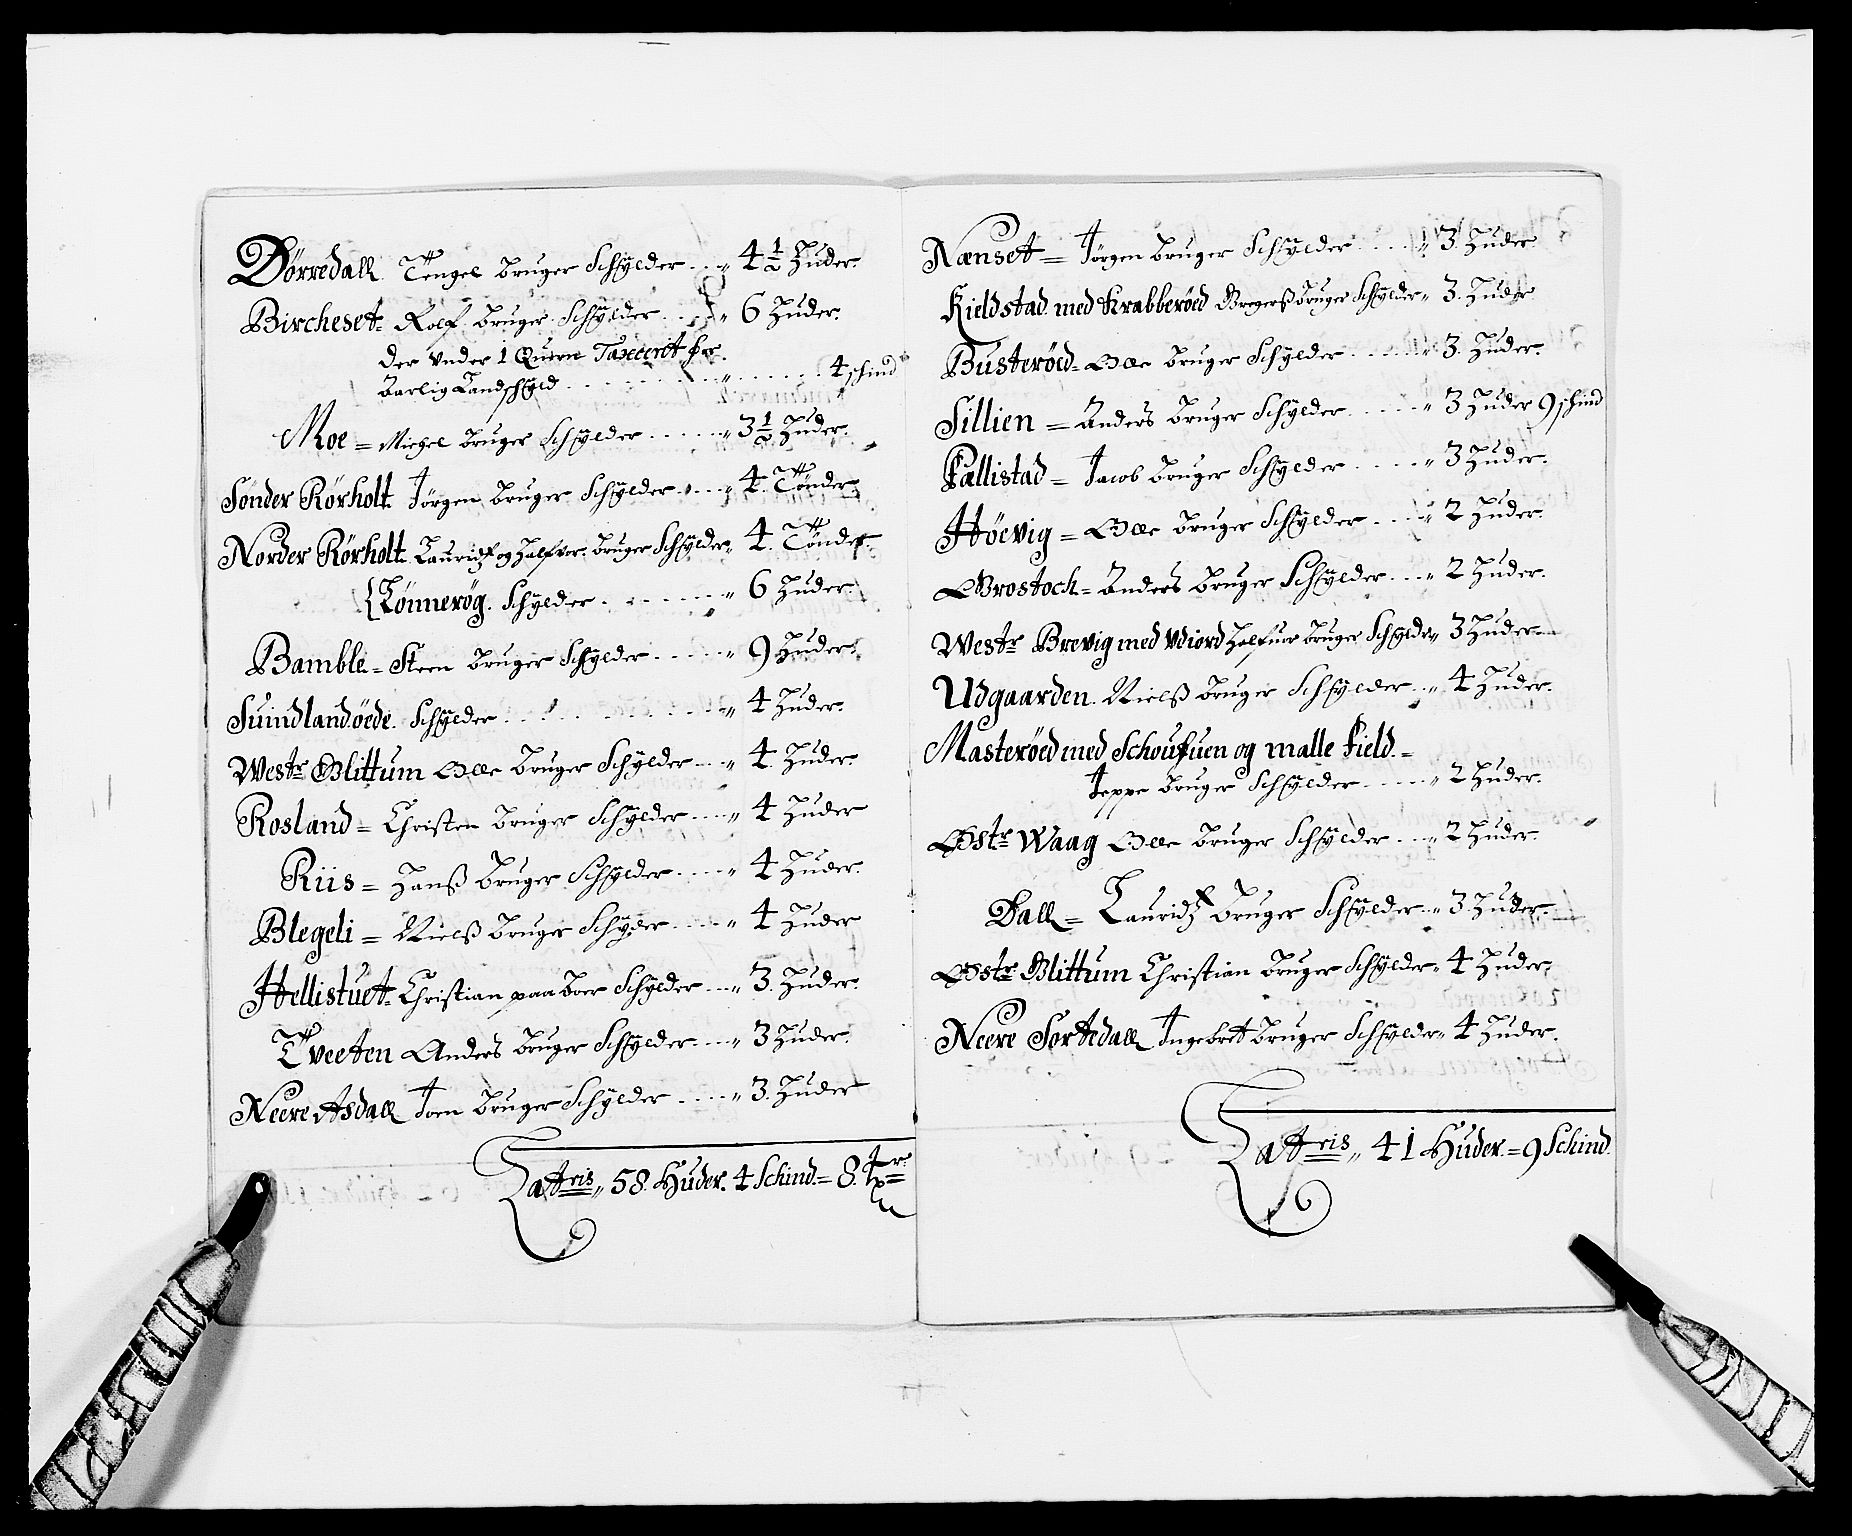 Dørredall Tengel bruger Schylder .. „ 4 1/2 Huder.
Bircheset - Rolf bruger Schylder ... „ 6 Huder.
der under 1 Quern Taxerit for
Aarlig Landschyld ........ „ ..... 4 schind
Moe = Michel bruger Schylder ..... „ 3 1/2 Huder.
Sønder Rørholt Jørgen bruger Schylder .... „ 4. Tønder
Norder Rørholt Lauridtz og Halfvor bruger Schylder „ 4. Tønder.
{Tønnerøg. Schylder ........ „ 6 Huder.
Bamble - Steen bruger Schylder ..... „ 9 Huder.
Suindlandøede. Schylder ......... „ 4 Huder.
Westr Blittum Olle bruger Schylder ... „ 4 Huder.
Rosland = Christen bruger Schylder .... „ 4 Huder
Riis = Hanß bruger Schylder .... „ 4 Huder.
Blegeli = Nielß bruger Schyder ..... „ 4 Huder
Hellistuet - Christian paaboer Schylder ... „ 3. Huder.
Tveeten Anders bruger Schylder .... „ 3 Huder.
Neere Asdall Joen bruger Schylder ..... „ 3. Huder
Lattris „ 58. Huder. 4 Schind = 8. tr
Nænset = Jørgen bruger Schylder ..... „ 3. Huder
Kieldstad med Krabberøed Bregerß bruger Schylder „ 3. Huder
Busterøed - Olle bruger Schylder ...... „ 3. Huder.
Sillien = Anders bruger Schylder ..... „ 3 Huder 9 schind
Fallistad = Jacob bruger Schylder ..... „ 3 Huder.
Høevig = Olle bruger Schylder .... „ 2 Huder.
Grostoch = Anders bruger Schylder ... „ 2 Huder.
Westr Brevig med Udiord Halfuor bruger Schylder „ 3 Huder
Udgaarden. Nielß bruger Schylder .. „ 4 Huder.
Masterøed med Schoufuen og malle Field =
Jeppe bruger Schylder ..... „ 2 Huder.
Østr Waag Olle bruger Schylder ... „ 2 Huder.
Dall = Lauridtz bruger Schylder .. „ 3. Huder.
Østr Blittum Christian bruger Schylder „ 4 Huder.
Neere Sortedall Ingebret bruger Schylder „ 4 Huder.
Lattris „ 41 Huder = 9 Schind.